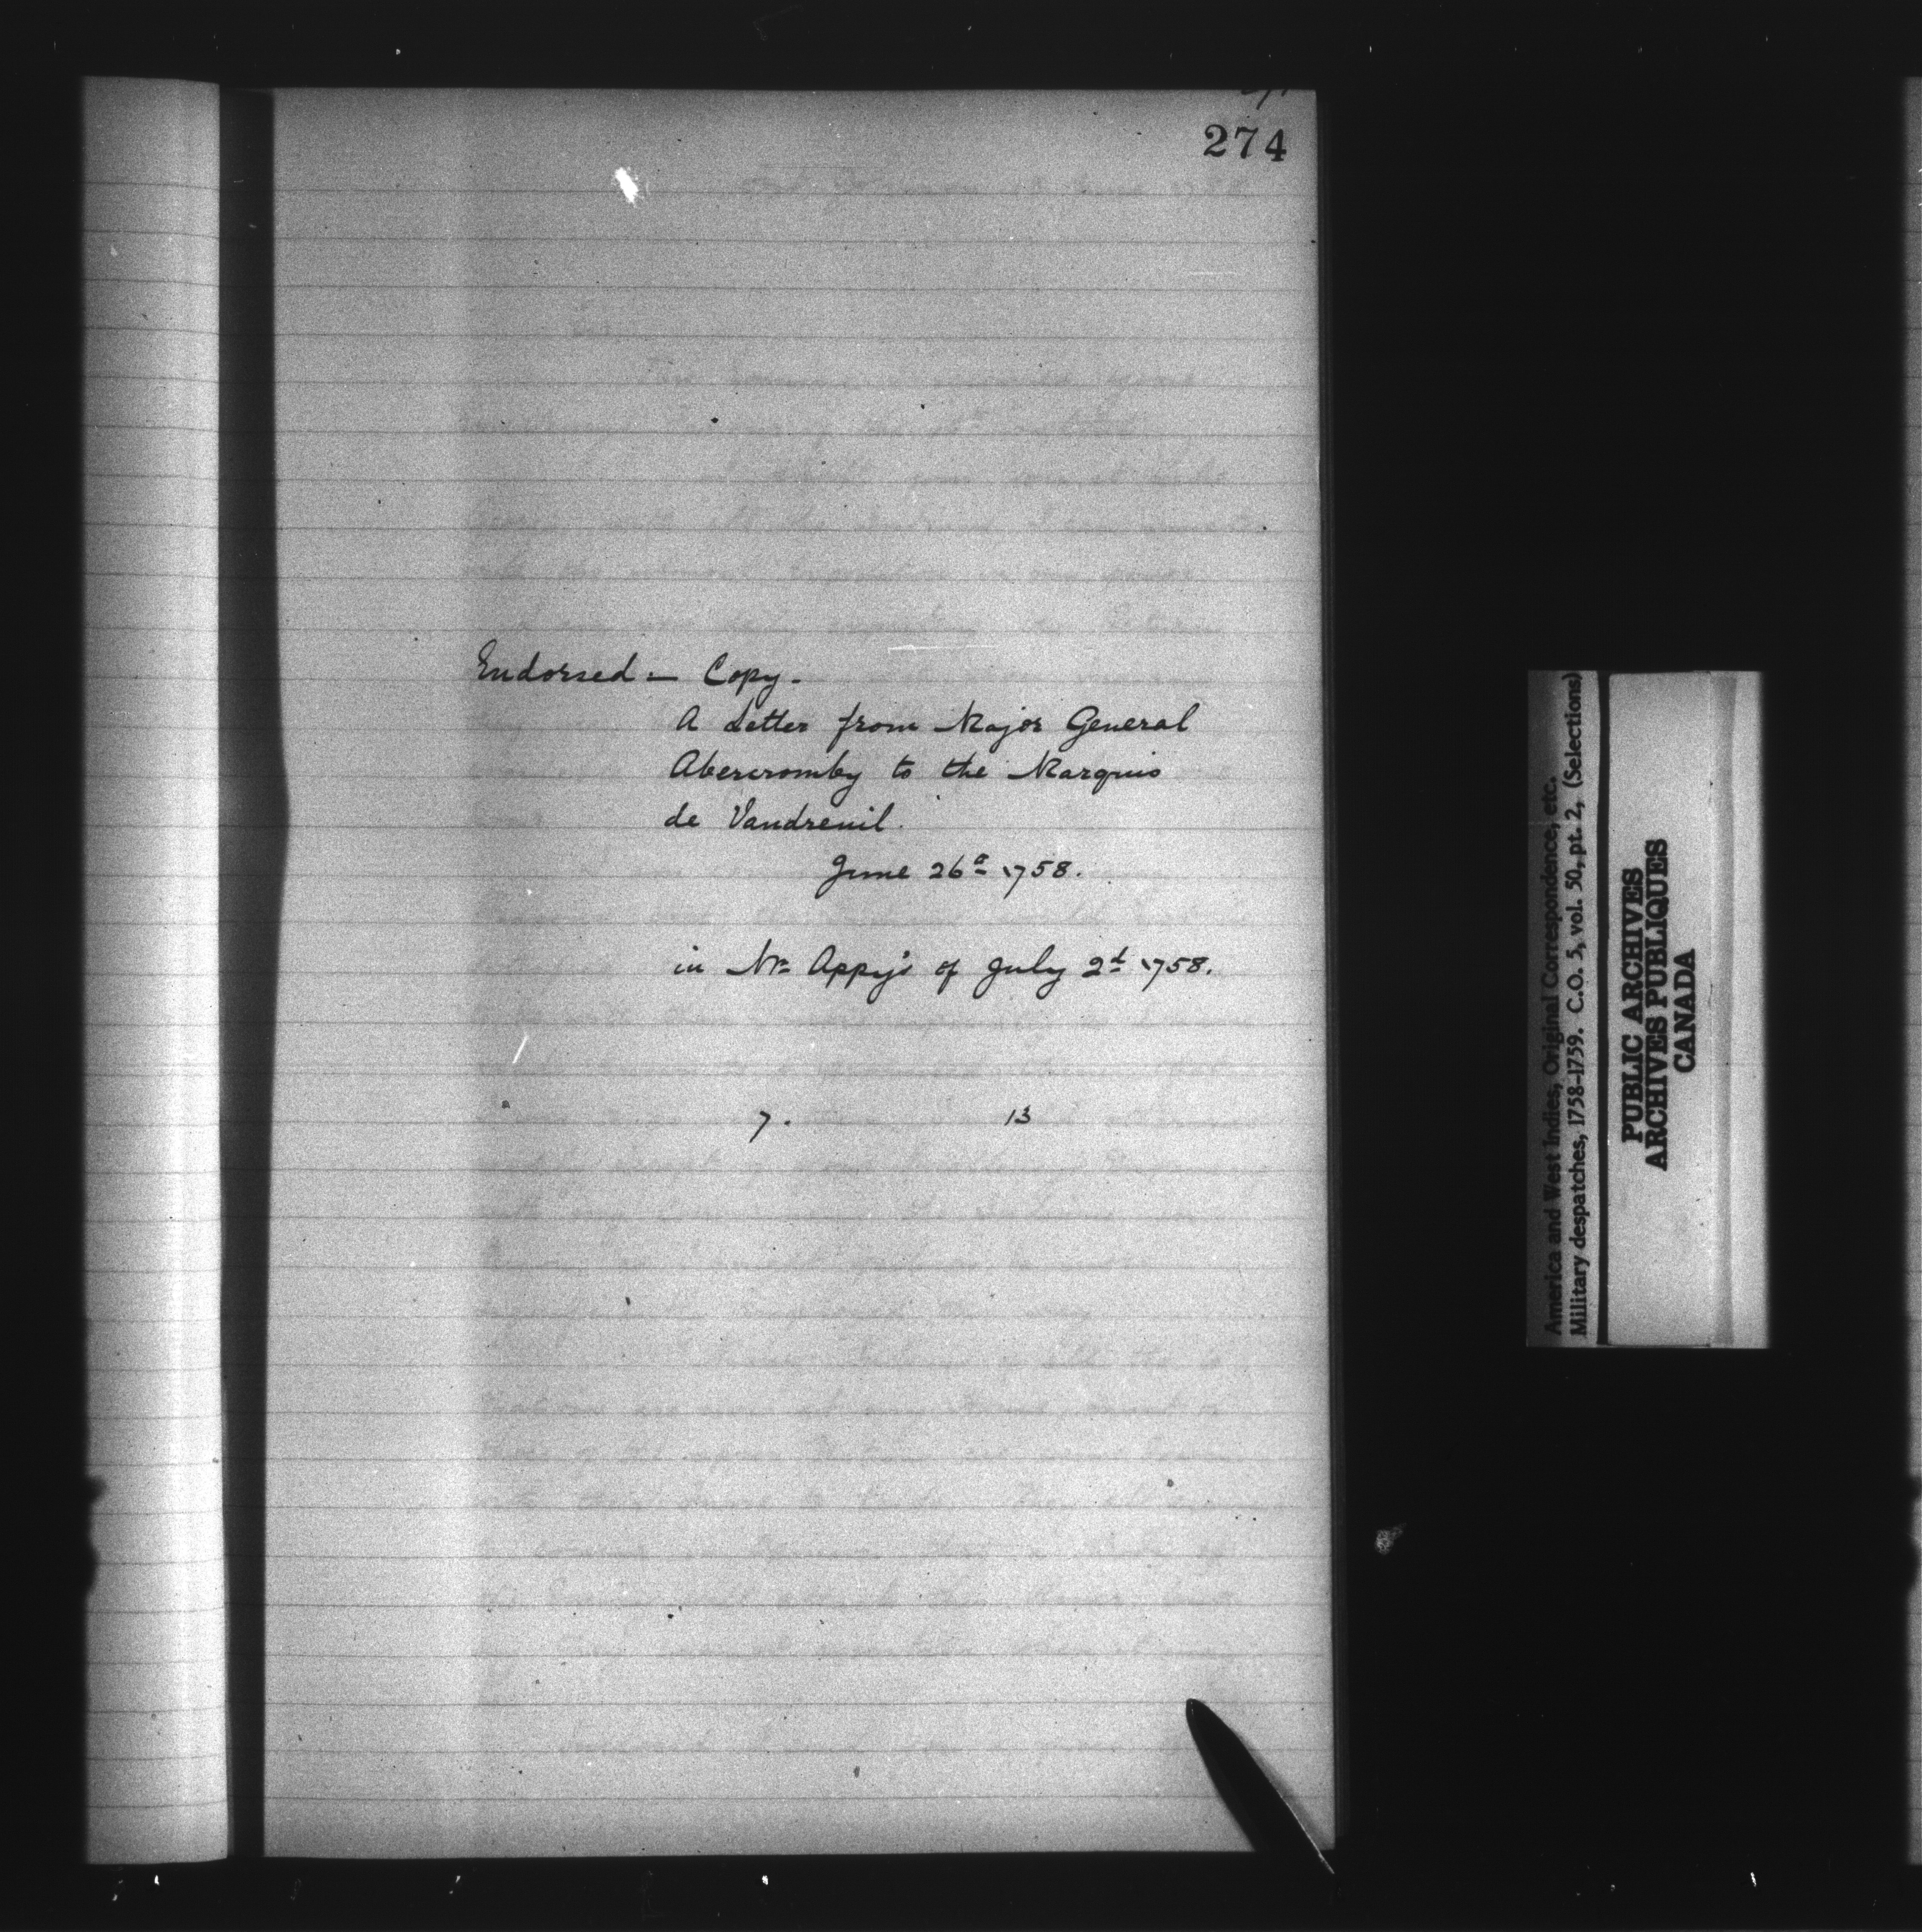 274
Endorsed – Copy.
A Letter from Major General
Abercromby to the Marquis
de Vaudreuil.
June 26th 1758.
in Mr Appy's of July 2d 1758.
7. 13
America and West Indies, Original Correspondence, etc.
Military despatches, 1758-1759. C.O. 5, vol. 50, pt. 2, (Selections)
PUBLIC ARCHIVES
ARCHIVES PUBLIQUES
CANADA